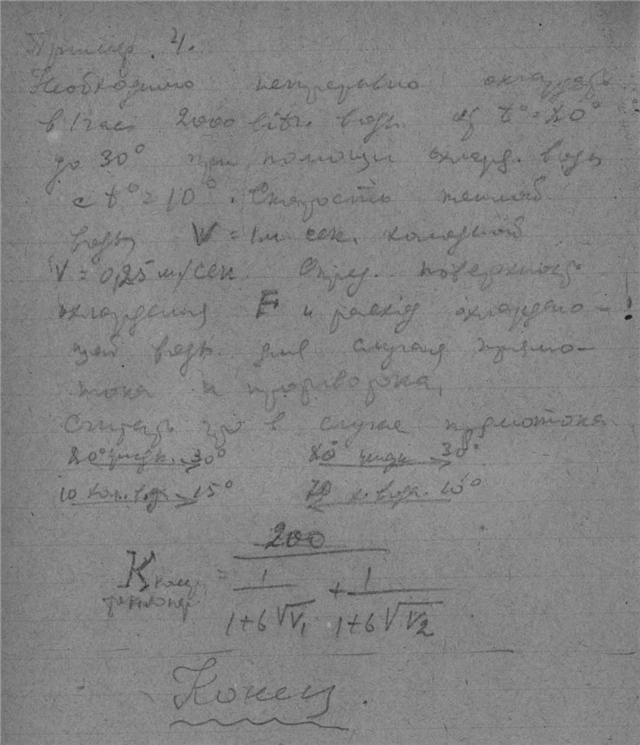 Пример 4.
Необходимо непрерывно охлаждать
в 1 час 2000 litr. воды от t° = 80°
до 30° при помощи охлажд. воды
с t° = 10°. Скорость теплой
воды V = 1м сек. холодной
V = 0,25 м/сек. Опред. поверхность
охлаждения F и расход охлаждаю-
щей воды для случая прямо-
тока и противотока.
Считать что в случае прямотока
80° жидк. 30° 80° жидк 30°
10 хол. вода 15° х. вода 10°
200
K = 1 + 1
1+6√V₁ 1+6√V₂
Конец.